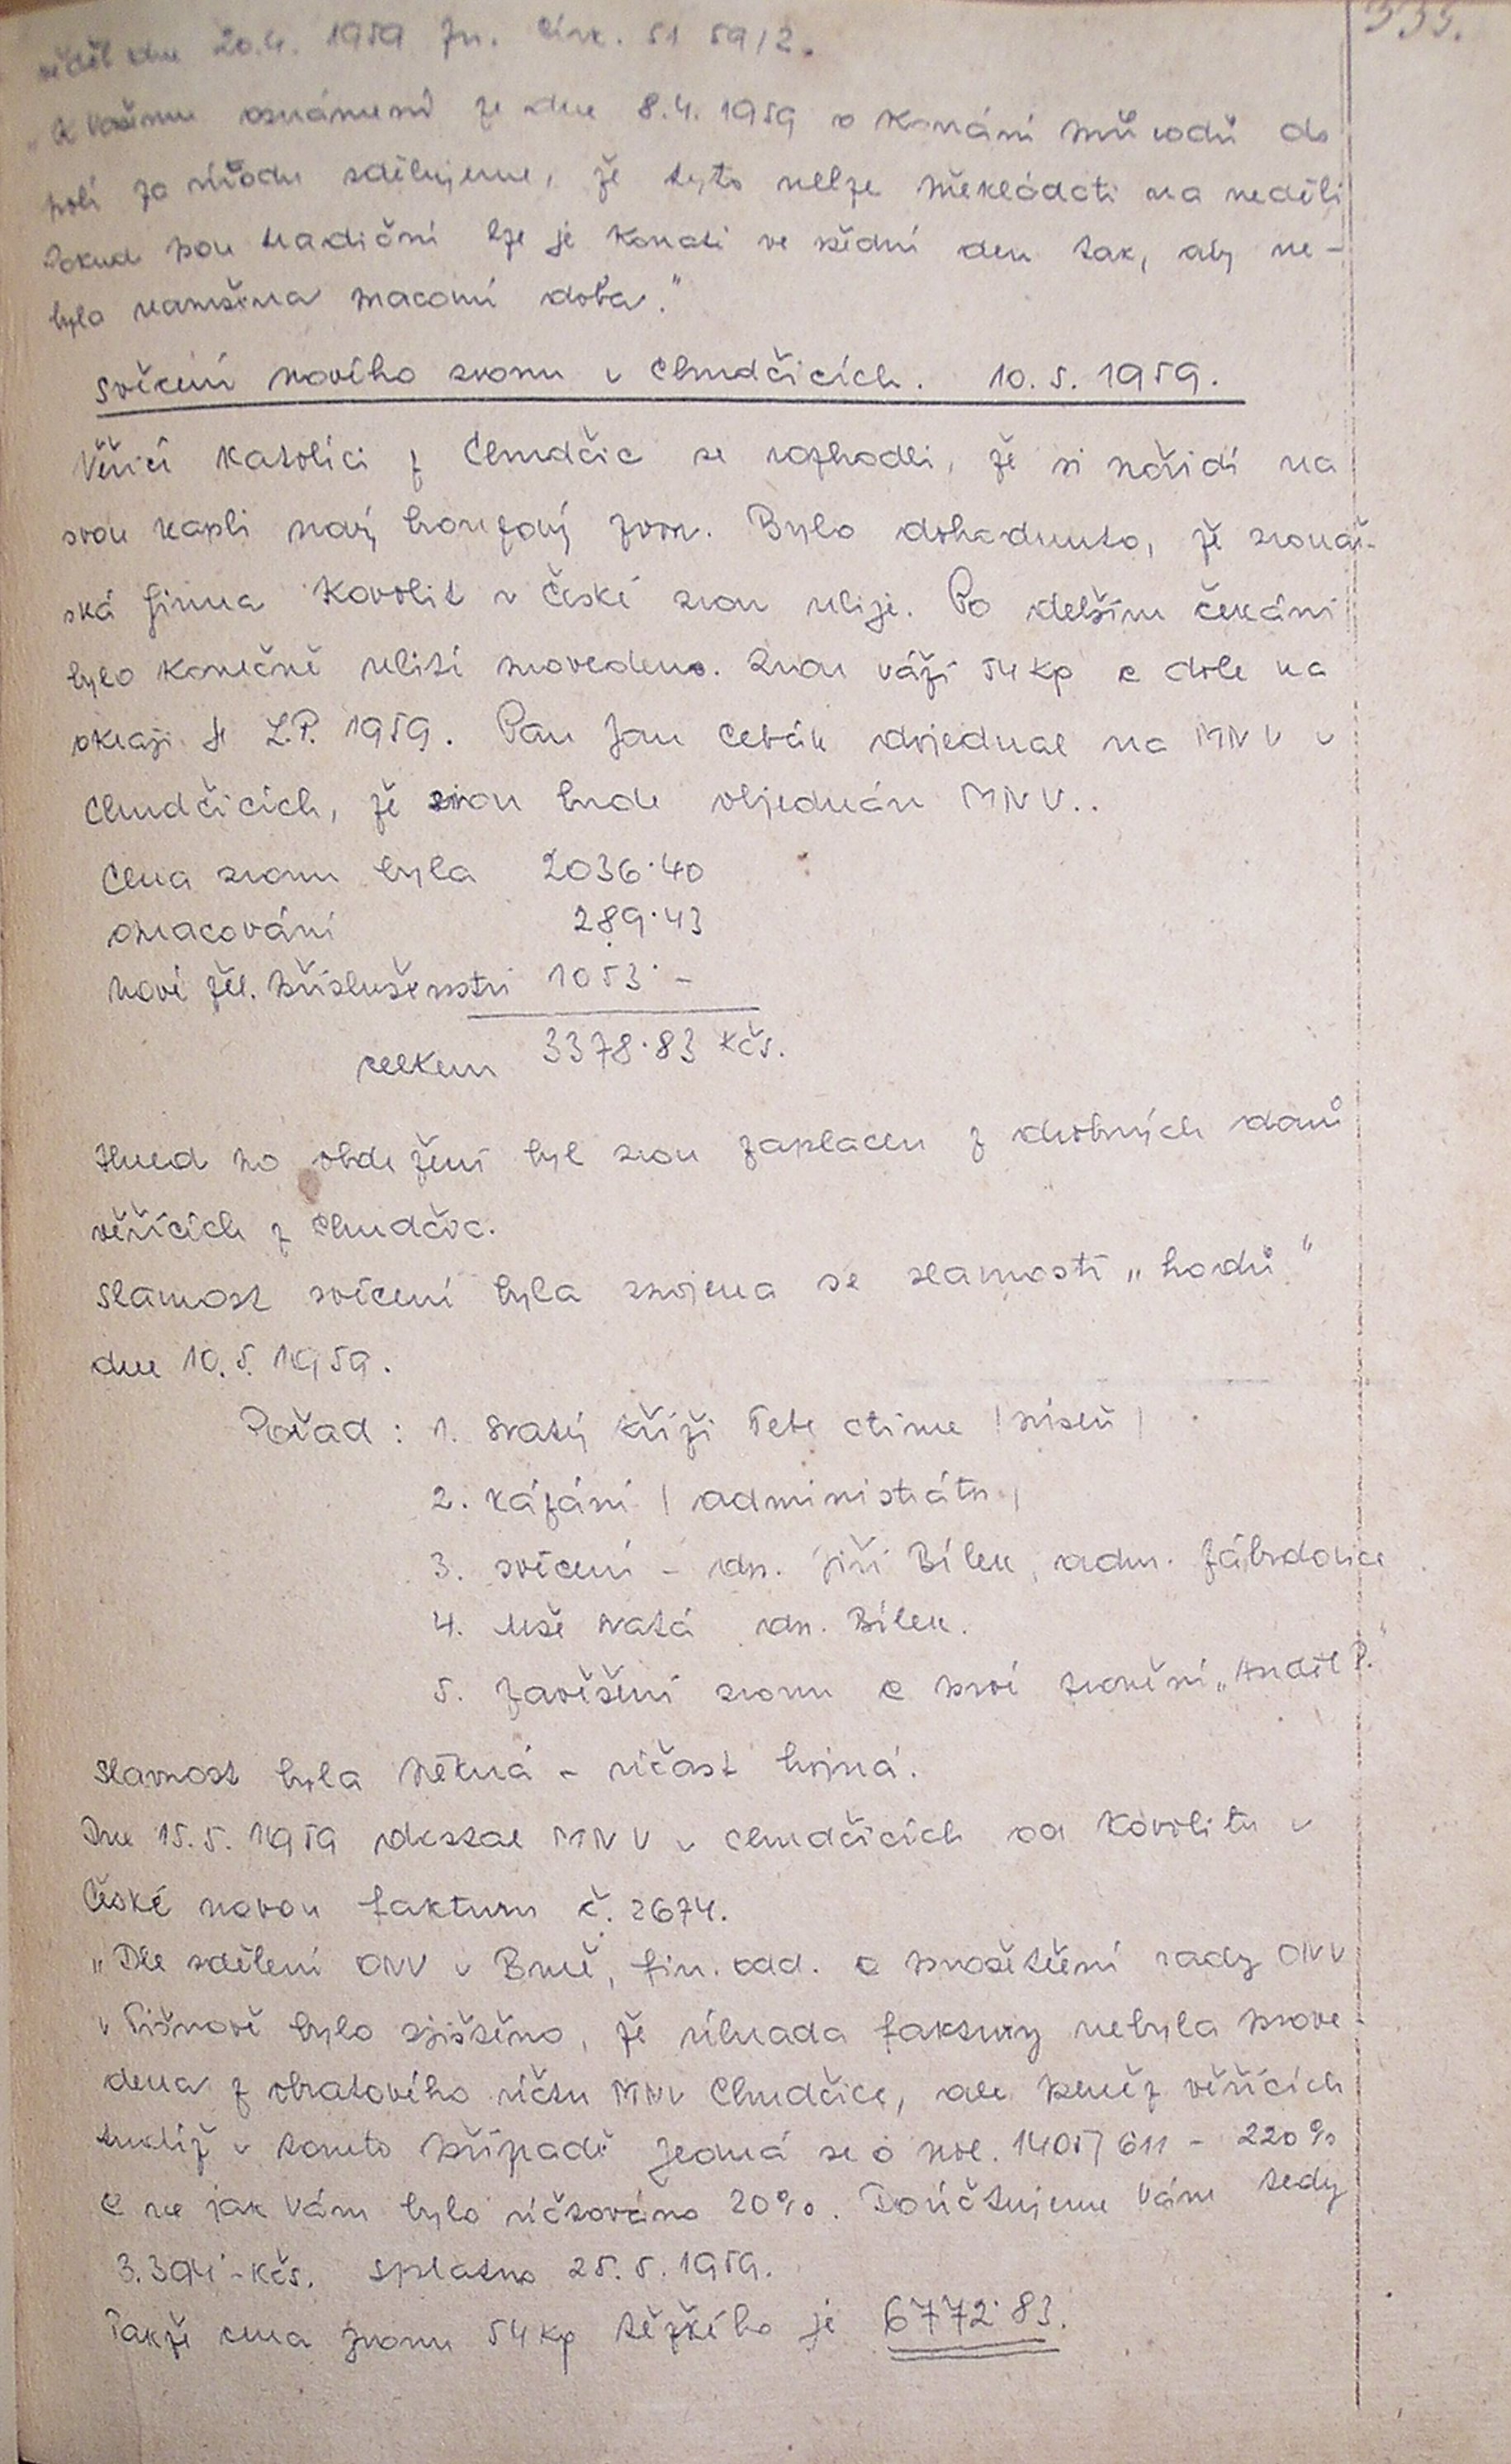 333.
věděl dne 20.4. 1959 Zn. Círk. 51 59/2.
„K Vašemu oznámení ze dne 8.4. 1959 o konání průvodů do
polí za úrodu sdělujeme, že tyto nelze překládati na neděli
Pokud jsou tradiční lze je konati ve všední den tak, aby ne-
byla narušena pracovní doba."
Svěcení nového zvonu v Chudčicích. 10. 5. 1959.
Věřící katolíci z Chudčic se rozhodli, že si pořídí na
svou kapli nový bronzový zvon. Bylo dohodnuto, že zvonař-
ská firma Kovolit v České zvon ulije. Po delším čekání
bylo konečně ulití provedeno. Zvon váží 54 kp a dole na
okraji je L.P. 1959. Pan Jan Cebák dojednal na MNV v
Chudčicích, že zvon bude objednán MNV..
Cena zvonu byla 2036.40
opracování 289.43
nové žel. příslušenství 1053.-
celkem 3378.83 Kčs.
Hned po obdržení byl zvon zaplacen z drobných darů
věřících z Chudčic.
Slavnost svěcení byla spojena se slavností „hodů"
dne 10. 5. 1959.
Pořad : 1. Svatý kříži Tebe ctíme /píseň/
2. kázání / administrátor /
3. svěcení - dp. Jiří Bílek, adm. Zábrdovice
4. Mše svatá dp. Bílek.
5. Zavěšení zvonu a prvé zvonění „Anděl P."
Slavnost byla pěkná - účast hojná.
Dne 15. 5. 1959 dostal MNV v Chudčicích od Kovolitu v
České novou fakturu č. 2674.
„Dle sdělení ONV v Brně, fin. odd. a prošetření rady ONV
v Tišnově bylo zjištěno, že úhrada faktury nebyla prove
dena z obratového účtu MNV Chudčice, ale peněz věřících
tudíž v tomto případě jedná se o pol. 1405/611 - 220%
a ne jak Vám bylo účtováno 20%. Doúčtujeme Vám tedy
3.394.- Kčs. Splatno 25. 5. 1959.
Takže cena zvonu 54 kp těžkého je 6772.83.